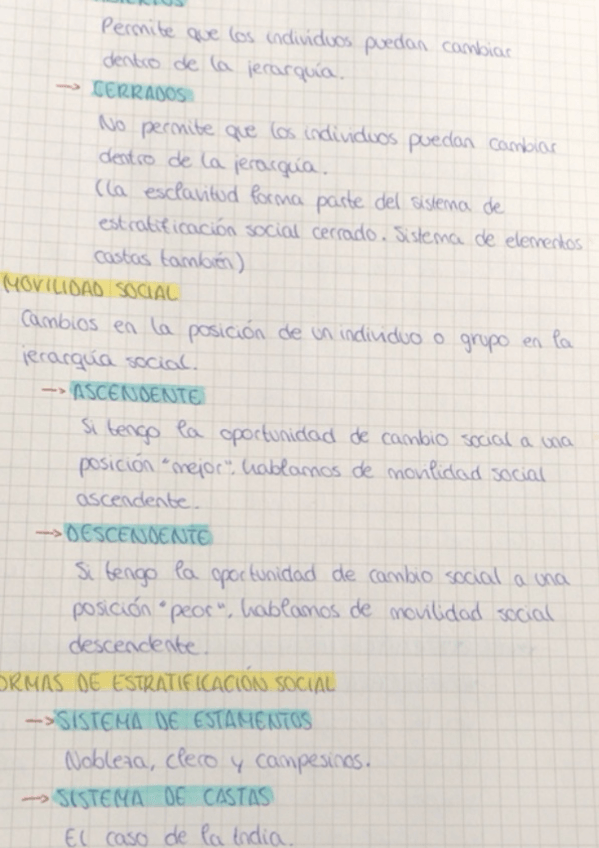 Permite que los individuos puedan cambiar
dentro de la jerarquía.
→ CERRADOS
No permite que los individuos puedan cambiar
dentro de la jerarquía.
(la esclavitud forma parte del sistema de
estratificación social cerrado. Sistema de elementos
castas también)
MOVILIDAD SOCIAL
Cambios en la posición de un individuo o grupo en la
jerarquía social.
→ ASCENDENTE
Si tengo la oportunidad de cambio social a una
posición "mejor". hablamos de movilidad social
ascendente.
→ DESCENDENTE
Si tengo la oportunidad de cambio social a una
posición "peor". hablamos de movilidad social
descendente.
ORMAS DE ESTRATIFICACIÓN SOCIAL
→ SISTEMA DE ESTAMENTOS
Nobleza, clero y campesinos.
→ SISTEMA DE CASTAS
El caso de la India.